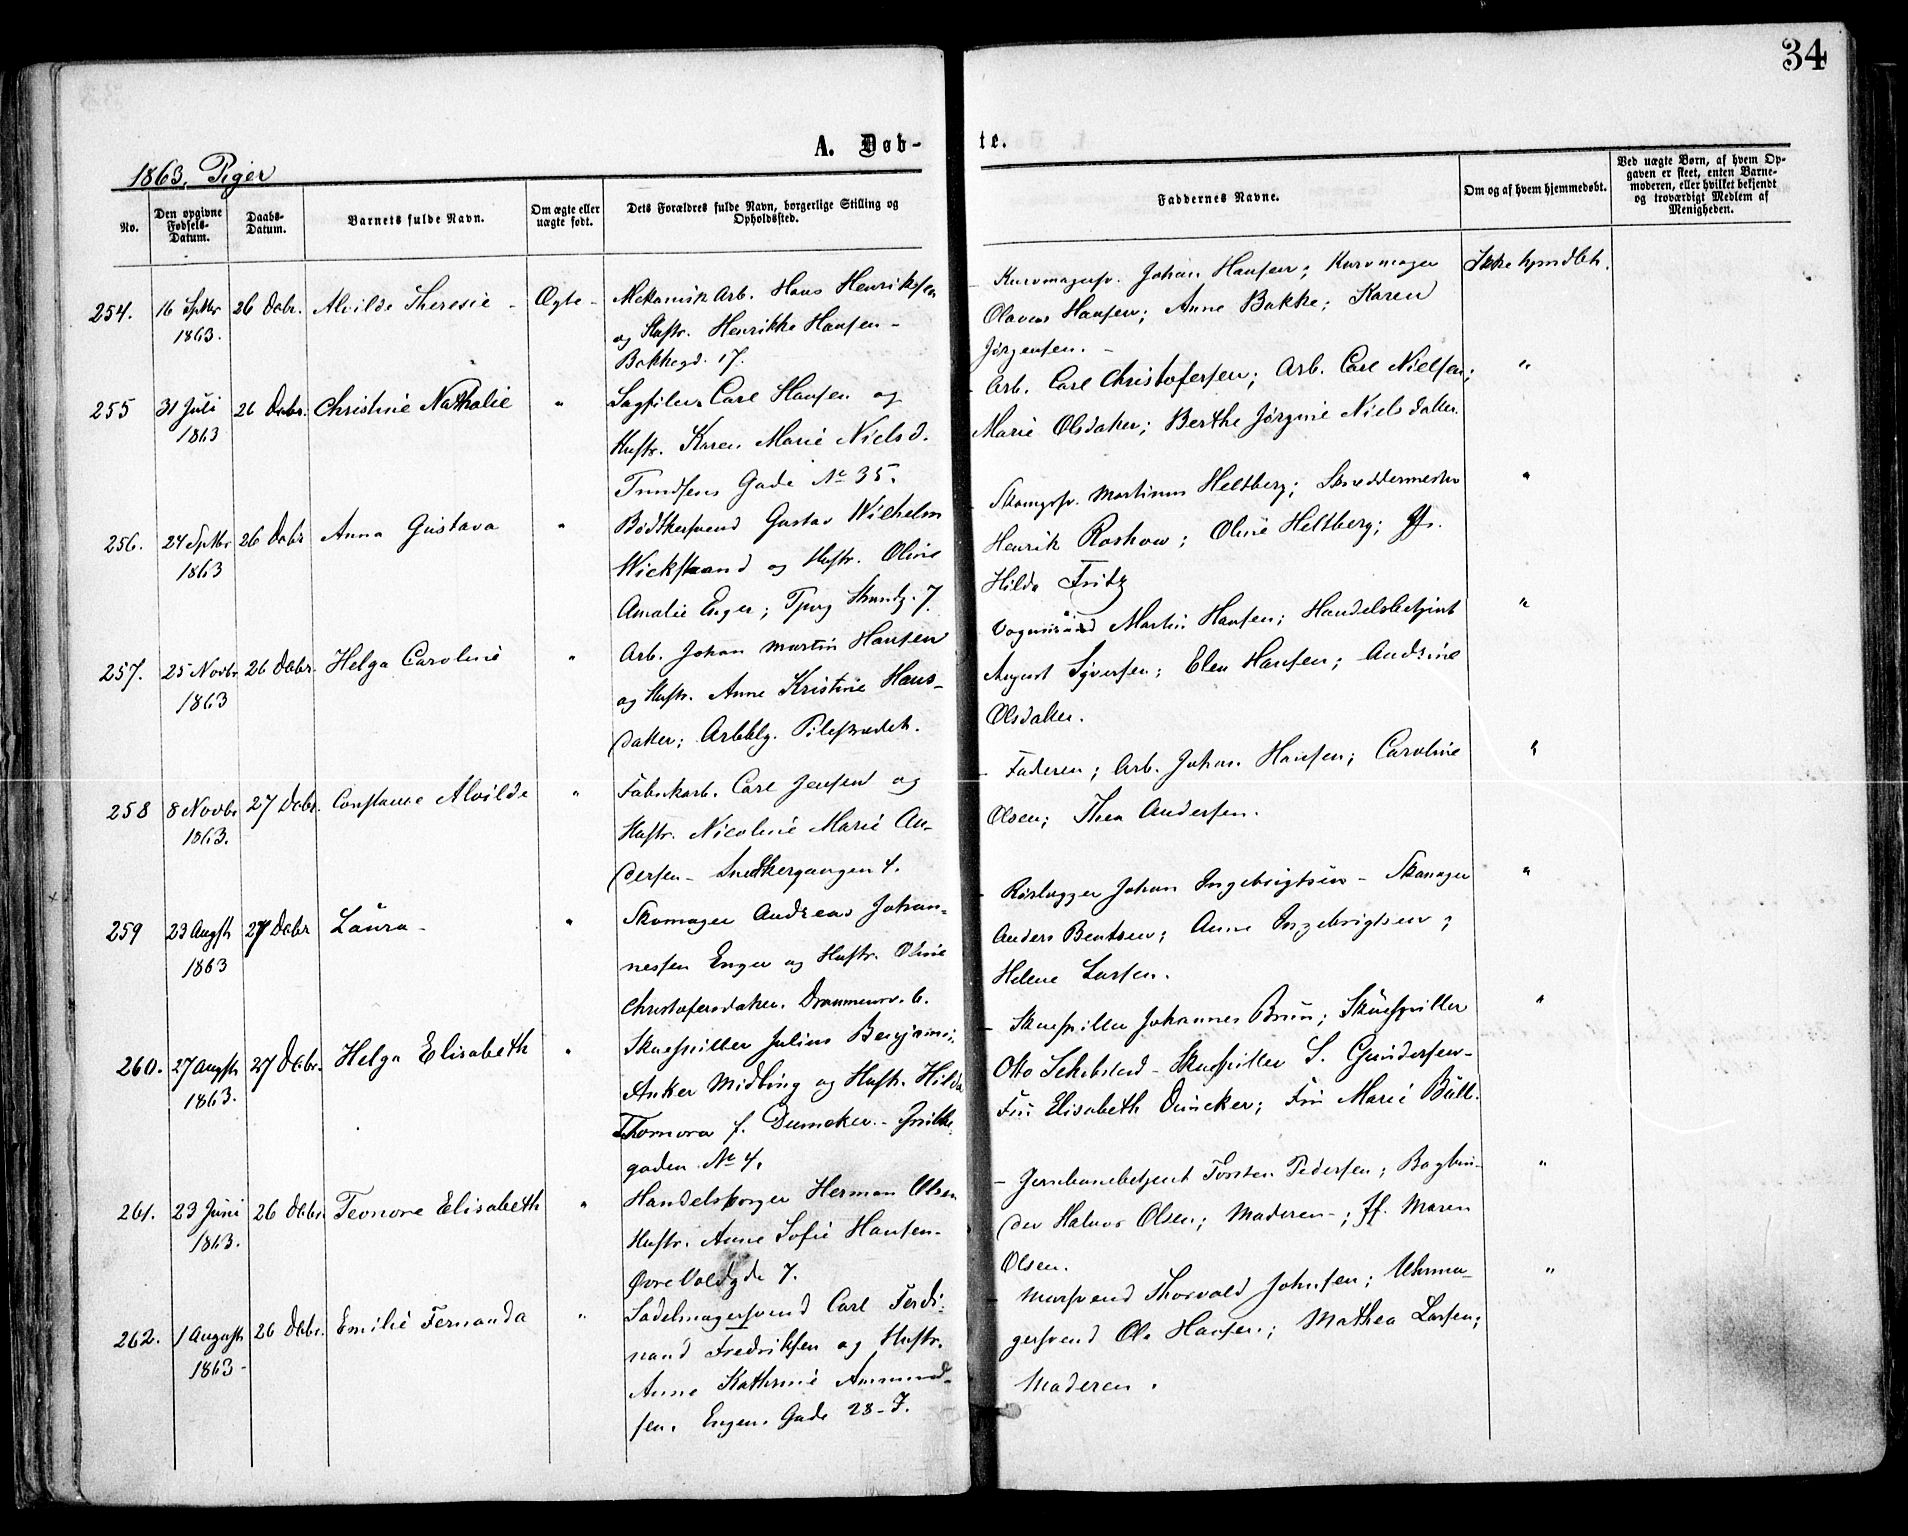 34
A. Døb-
te.
1863. Piger
No.
Den opgivne Fødsels-Datum.
Daabs-Datum.
Barnets fulde Navn.
Om ægte eller uægte født.
Dets Forældres fulde Navn, borgerlige Stilling og Opholdssted.
Faddernes Navne.
Om og af hvem hjemmedøbt.
Ved uægte Børn, af hvem Op-
gaven er skeet, enten Barne-
moderen, eller hvilket bekjendt
og troværdigt Medlem af
Menigheden.
254. 16 Sptbr 1863. 26 Decbr. Alvilde Theresie - Ægte -
Mekanisk Arb. Hans Henriksen
og Hustr. Henrikke Hansen -
Bakkegd. 17.
Kurvmagersv. Johan Hansen; Kurvmager
Olavus Hansen; Anne Bakke; Karen
Jørgensen. -
Ikke hjmdbt.
255 31 Juli 1863 26 Decbr. Christine Nathalie "
Sagfiler Carl Hansen og
Hustr. Karen Marie Nielsd.
Gade No 35.
- Arb. Carl Christofersen; Arb. Carl Nielsen;
Marie Olsdatter; Berthe Jørgine Nielsdatter.
"
256. 24 Sptbr 1863 26 Decbr Anna Gustava "
Bødtkersvend Gustav Wilhelm
Wickstrand og Hustr. Oline
Amalie Enger; 7.
- Skomgsv. Martinus Heltberg; Skreddermester
Henrik Roshow; Oline Heltberg; Jfr.
Hilda Fritz
"
257. 25 Novbr 1863 26 Decbr. Helga Caroline "
Arb. Johan Martin Hansen
og Hustr. Anne Kristine Hans-
datter; Arbblg. Pilestrædet.
Vognmand Martin Hansen; Handelsbetjent
August Syversen; Elen Hansen; Andrine
Olsdatter.
"
258 8 Novbr 1863. 27 Decbr. Constance Alvilde "
Fabrikarb. Carl Jensen og
Hustr. Nicoline Marie An-
dersen - Snedkergangen 4.
- Faderen; Arb. Johan Hansen; Caroline
Olsen; Thea Andersen.
"
259 23 Augst 1863 27 Decbr Laura - "
Skomager Andreas Johan-
nessen Enger og Hustr. Oline
Christofersdatter. Drammensv. 6.
- Rørlægger Johan Ingebrigtsen - Skomager
Anders Bentsen; Anne Ingebrigtsen;
Helene Larsen.
"
260. 27 Augst 1863. 27 Decbr. Helga Elisabeth "
Skuespiller Julius Benjamin
Anker Midling og Hustr. Hilda
Thornora f. Duncker -
gaden No 4.
- Skuespiller Johannes Brun; Skuespiller
Otto Schibsted - Skuespiller S. Gundersen -
Fru Elisabeth Duncker; Fru Marie Bull.
"
261. 23 Juni 1863. 26 Decbr. Teonore Elisabeth "
Handelsborger Herman Olsen
Hustr. Anne Sofie Hansen -
Øvre Voldgde 7.
- Jernbanebetjent Torsten Pedersen; Bogbin-
der Halvor Olsen; Moderen -; Jf. Maren
Olsen.
"
262. 1 August 1863 - 26 Decbr. Emilie Fernanda "
Sadelmagersvend Carl Ferdi-
nand Fredriksen og Hustr.
Anne Kathrine Ammund-
sen. Engen. Gade 28 - 7.
Mursvend Thorvald Johnsen; Uhrma-
gersvend Ole Hansen; Mathea Larsen;
Moderen.
"